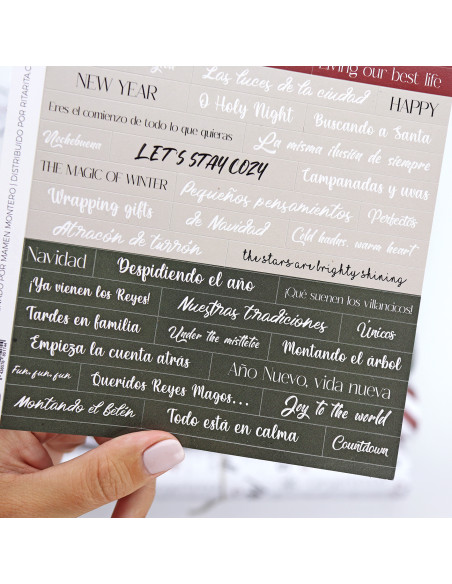 Living our best life
Las luces de la ciudad
NEW YEAR
HAPPY
O Holy Night
Eres el comienzo de todo lo que quieras
Buscando a Santa
Nochebuena
La misma ilusión de siempre
LET'S STAY COZY
THE MAGIC OF WINTER
Campanadas y uvas
Pequeños pensamientos de Navidad
Wrapping gifts
Perfectos
Cold hands, warm heart
Atracón de turrón
the stars are brighty shining
Navidad
Despidiendo el año
¡Qué suenen los villancicos!
¡Ya vienen los Reyes!
Nuestras tradiciones
Tardes en familia
Under the mistletoe
Unicos
Empieza la cuenta atrás
Montando el árbol
Fun, fun, fun
Año Nuevo, vida nueva
Queridos Reyes Magos...
Joy to the world
Montando el Belén
Todo está en calma
Countdown
POR MAMEN MONTERO | DISTRIBUIDO POR RITARITA.C